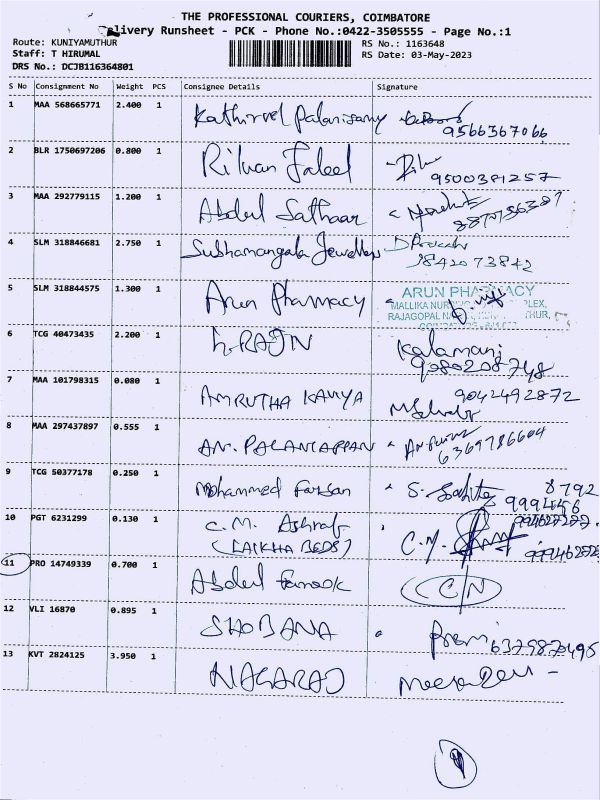 THE PROFESSIONAL COURIERS, COIMBATORE
Delivery Runsheet - PCK - Phone No.:0422-3505555 - Page No.:1
Route: KUNIYAMUTHUR RS No.: 1163648
Staff: T HIRUMAL RS Date: 03-May-2023
DRS No.: DCJB116364801
S No Consignment No Weight PCS Consignee Details Signature
1 MAA 568665771 2.400 1 Kathirvel Palanisamy
9566367066
2 BLR 1750697206 0.800 1 Rilwan Faleel
9500381257
3 MAA 292779115 1.200 1 Abdul Sathaar
4 SLM 318846681 2.750 1 Subhamangala Jewellers D Prakash
9842073842
5 SLM 318844575 1.300 1 Arun Pharmacy ARUN PHARMACY
MALLIKA NUR
RAJAGOPAL
6 TCG 40473435 2.200 1 Kalamani
9080208748
7 MAA 101798315 0.080 1 AMRUTHA KAVYA 9042492872
8 MAA 297437897 0.555 1 AN. PALANIAPPAN
6369786604
9 TCG 50377178 0.250 1 Mohammed Farsan S. 8792
10 PGT 6231299 0.130 1 C.M. Ashraf C.M.
(LAIKHA BEDS)
11 PRO 14749339 0.700 1 Abdul Farook C/N
12 VLI 16870 0.895 1 SHOBANA Premi
13 KVT 2824125 3.950 1 NAGARAJ Meera Devi